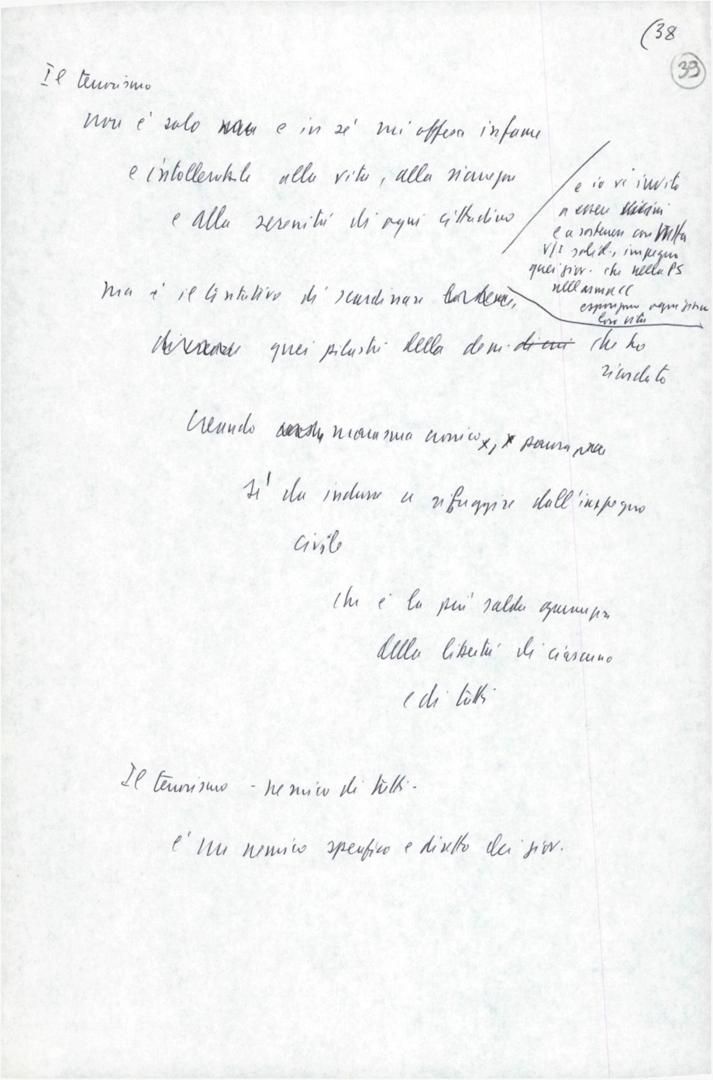 (38
39
Il terrorismo
non è solo e in sé un'offesa infame
e intollerabile alla vita, alla sicurezza
e alla serenità di ogni cittadino
e io vi invito
a essere vicini
e a sostenere con tutta
v/s solid., impegno
quei giov. che nella PS
nell'arma CC
espongono ogni giorno
loro vita
ma è il tentativo di scardinare
quei pilastri della dem. che ho
ricordato
creando marasma cronico, paura
sì da indurre a rifuggire dall'impegno
civile
che è la più salda garanzia
della libertà di ciascuno
e di tutti
Il terrorismo - nemico di tutti -
è un nemico specifico e diretto dei giov.